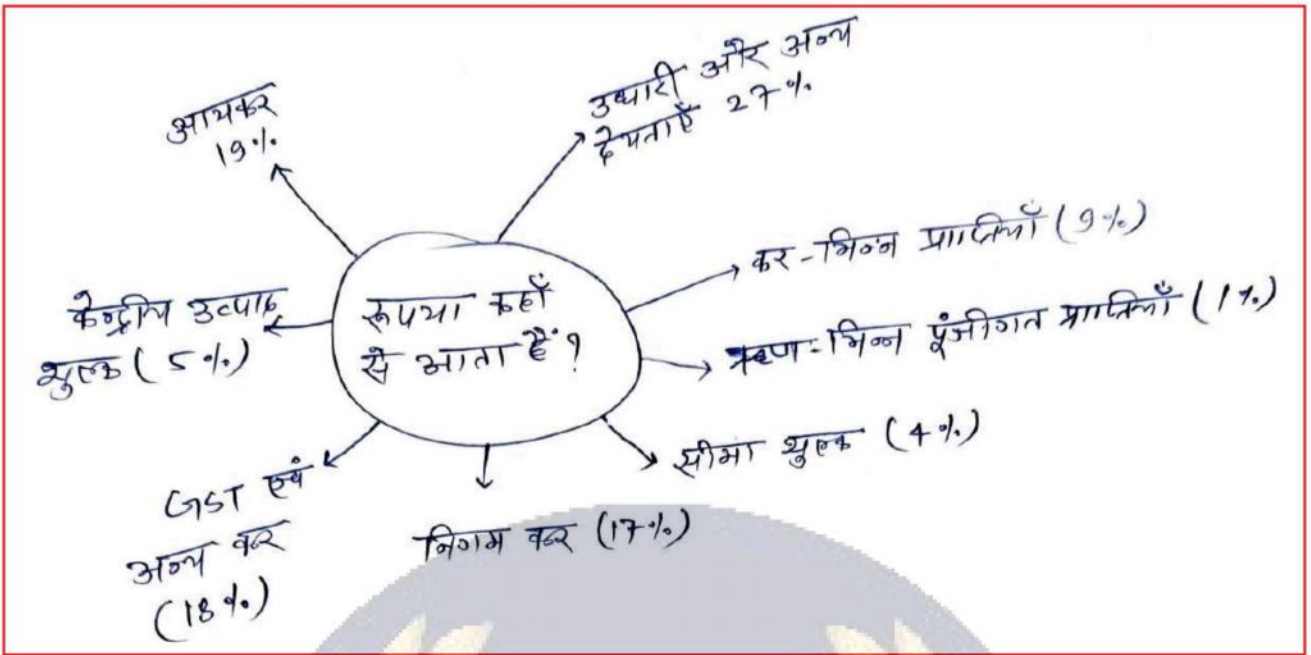 आयकर
19%
उधारी और अन्य
देयताएँ 27%
कर-भिन्न प्राप्तियाँ (9%)
ऋण-भिन्न पूंजीगत प्राप्तियाँ (1%)
सीमा शुल्क (4%)
निगम कर (17%)
GST एवं
अन्य कर
(18%)
केन्द्रीय उत्पाद
शुल्क (5%)
रूपया कहाँ
से आता हैं?